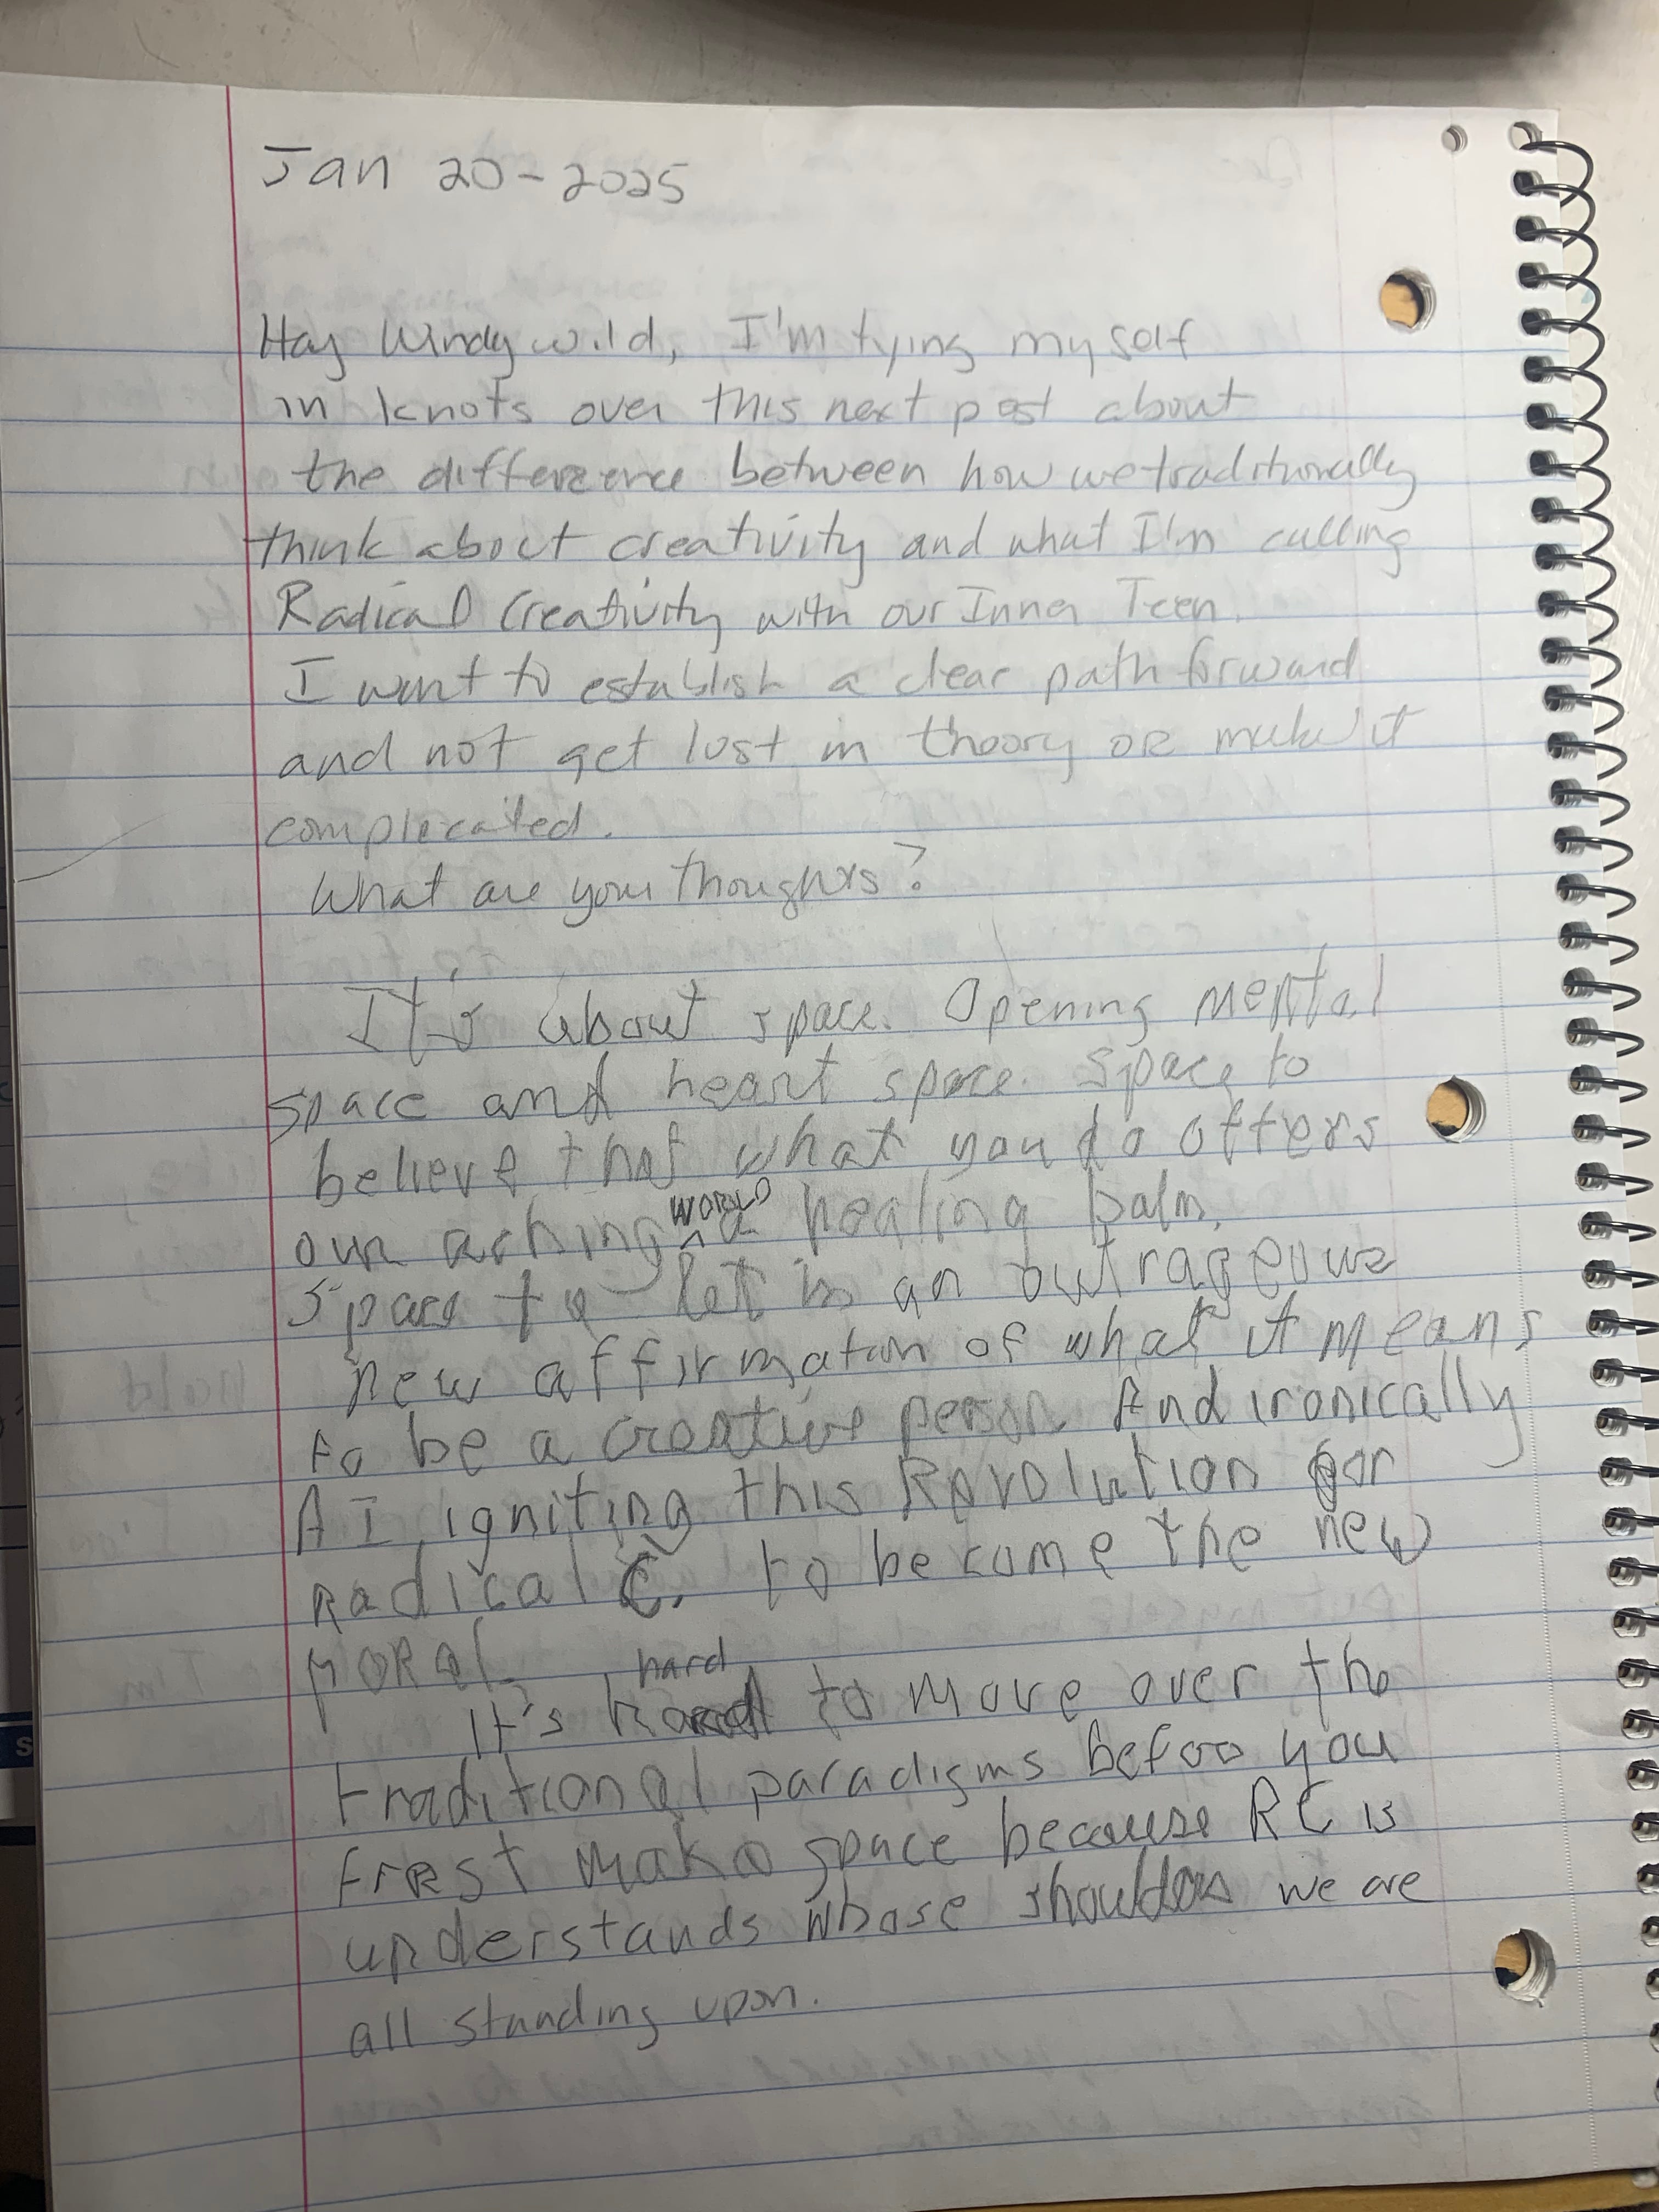 Jan 20-2025
Hay Windywild, I'm tying myself
in knots over this next post about
the difference between how we traditionally
think about creativity and what I'm calling
Radical Creativity with our Inner Teen.
I want to establish a clear path forward
and not get lost in theory or make it
complecated.
What are your thoughts?
It's about space. Opening mental
space and heart space. Space to
believe that what you do offers
our aching WORLD a healing balm.
Space to let in an outrageous
new affirmation of what it means
to be a creative person. And ironically
AI igniting this Revolution for
Radical C. to become the new
MORAL.
It's hard to move over the
traditional paradigms before you
first make space because RC is
understands whose shoulders we are
all standing upon.